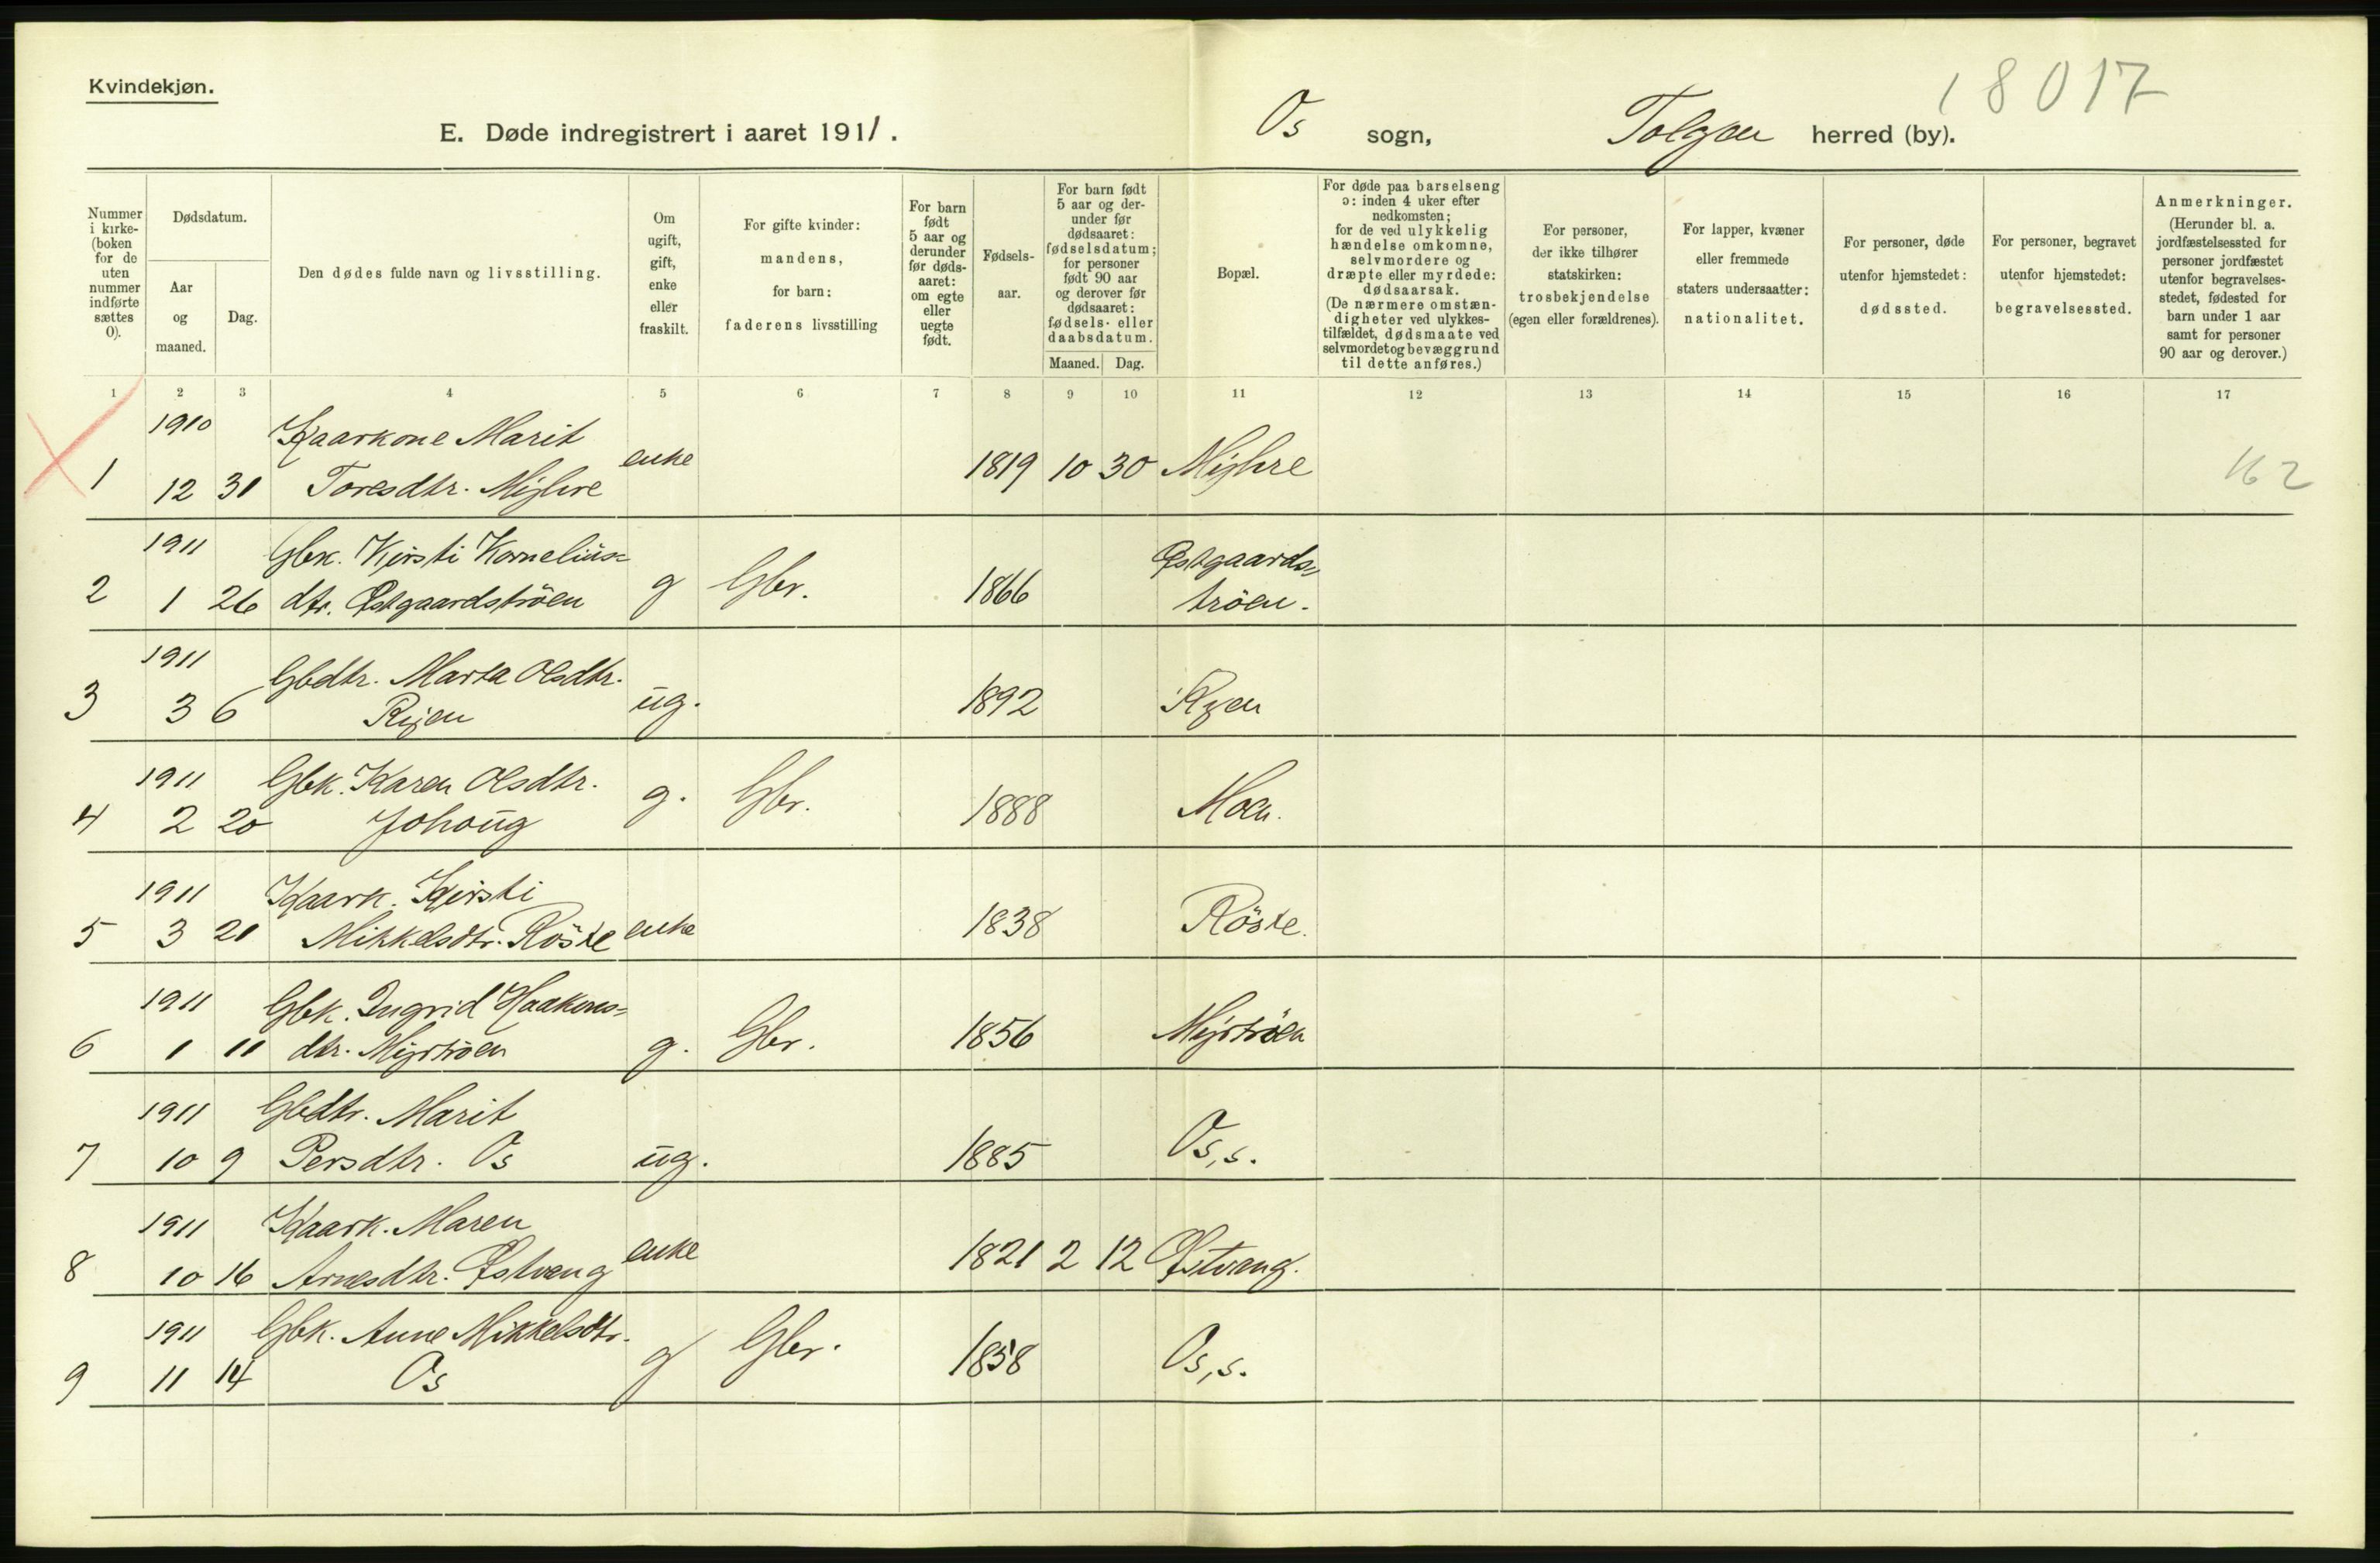 Kvindekjøn.
18017
E. Døde indregistrert i aaret 1911.
Os sogn, Tolgen herred (by).
Nummer
i kirke-
(boken
for de
uten
nummer
indførte
sættes
0).
Dødsdatum.
Aar
og
maaned.
Dag.
Den dødes fulde navn og livsstilling.
Om
ugift,
gift,
enke
eller
fraskilt.
For gifte kvinder:
mandens,
for barn:
faderens livsstilling
For barn
født
5 aar og
derunder
før døds-
aaret:
om egte
eller
uegte
født.
Fødsels-
aar.
For barn født
5 aar og der-
under før
dødsaaret:
fødselsdatum;
for personer
født 90 aar
og derover før
dødsaaret:
fødsels- eller
daabsdatum.
Maaned. Dag.
Bopæl.
For døde paa barselseng
ɔ: inden 4 uker efter
nedkomsten;
for de ved ulykkelig
hændelse omkomne,
selvmordere og
dræpte eller myrdede:
dødsaarsak.
(De nærmere omstæn-
digheter ved ulykkes-
tilfældet, dødsmaate ved
selvmord et og bevæggrund
til dette anføres.)
For personer,
der ikke tilhører
statskirken:
trosbekjendelse
(egen eller forældrenes).
For lapper, kvæner
eller fremmede
staters undersaatter:
nationalitet.
For personer, døde
utenfor hjemstedet:
dødssted.
For personer, begravet
utenfor hjemstedet:
begravelsessted.
Anmerkninger.
(Herunder bl. a.
jordfæstelsessted for
personer jordfæstet
utenfor begravelses-
stedet, fødested for
barn under 1 aar
samt for personer
90 aar og derover.)
1 2 3 4 5 6 7 8 9 10 11 12 13 14 15 16 17
1910 Kaarkone Marit
1 12 31 Toresdtr. enke 1819 10 30 162
1911 Gbk. Kirsti Kornelius= Østgaards=
2 1 26 dtr. Østgaardströen g Gbr. 1866 tröen.
1911 Gbdtr. Marta Olsdtr.
3 3 6 Ryen ug. 1892 Ryen
1911 Gbk. Karen Olsdtr.
4 2 20 Johoug g. Gbr. 1888 Moen.
1911 Kaark. Kirsti
5 3 21 Mikkelsdtr. Röste enke 1838 Röste.
1911 Gbk. Ingrid Haakons=
6 1 11 dtr. Myrtröen g. Gbr. 1856 Myrtröen
1911 Gbdtr. Marit
7 10 9 Persdtr. Os ug. 1885 Os, s.
1911 Kaark. Maren
8 10 16 Arnesdtr. Østvang enke 1821 2 12 Østvang.
1911 Gbk. Anne Mikkelsdtr.
9 11 14 Os g Gbr. 1858 Os, s.